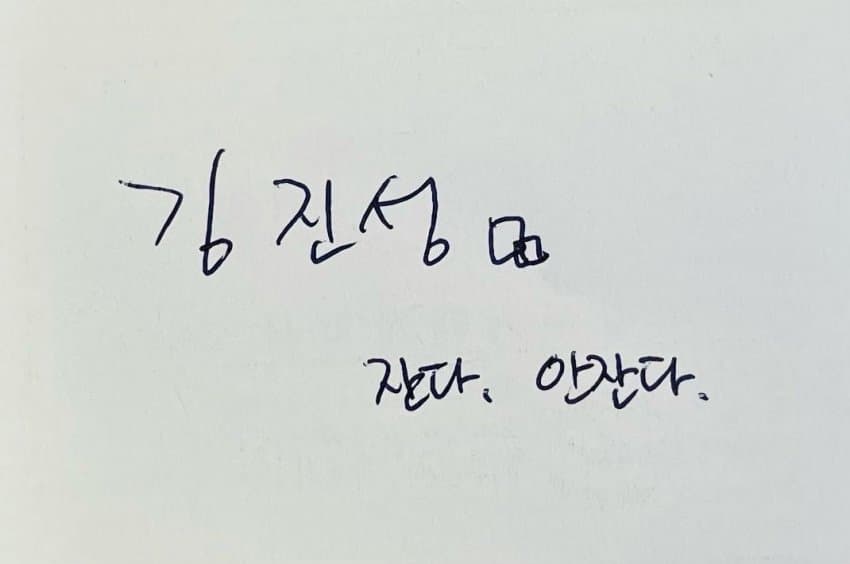 김진성
잔다. 안잔다.